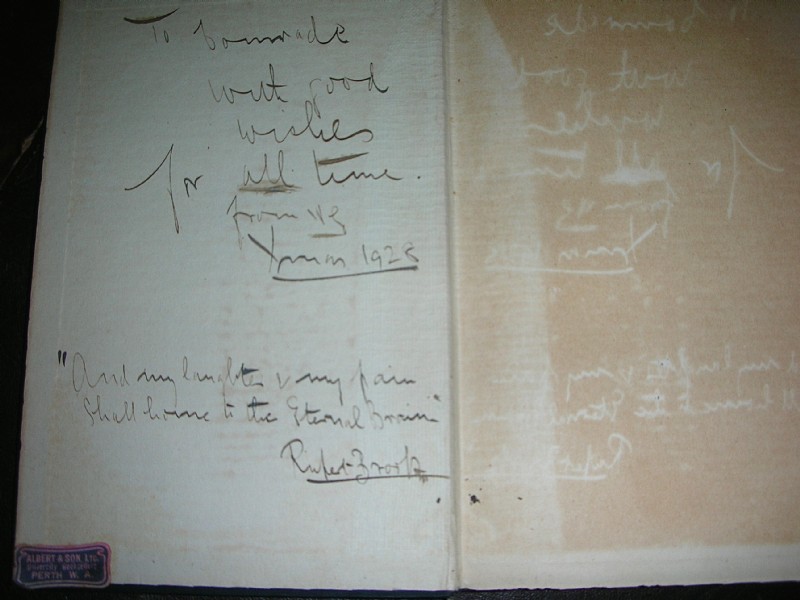 To Comrade
with good
wishes
for all time.
from
Xmas 1928
"And my laughter & my pain
Shall home to the Eternal Brain"
Rupert Brooke
ALBERT & SON LTD.
University Booksellers
PERTH W. A.